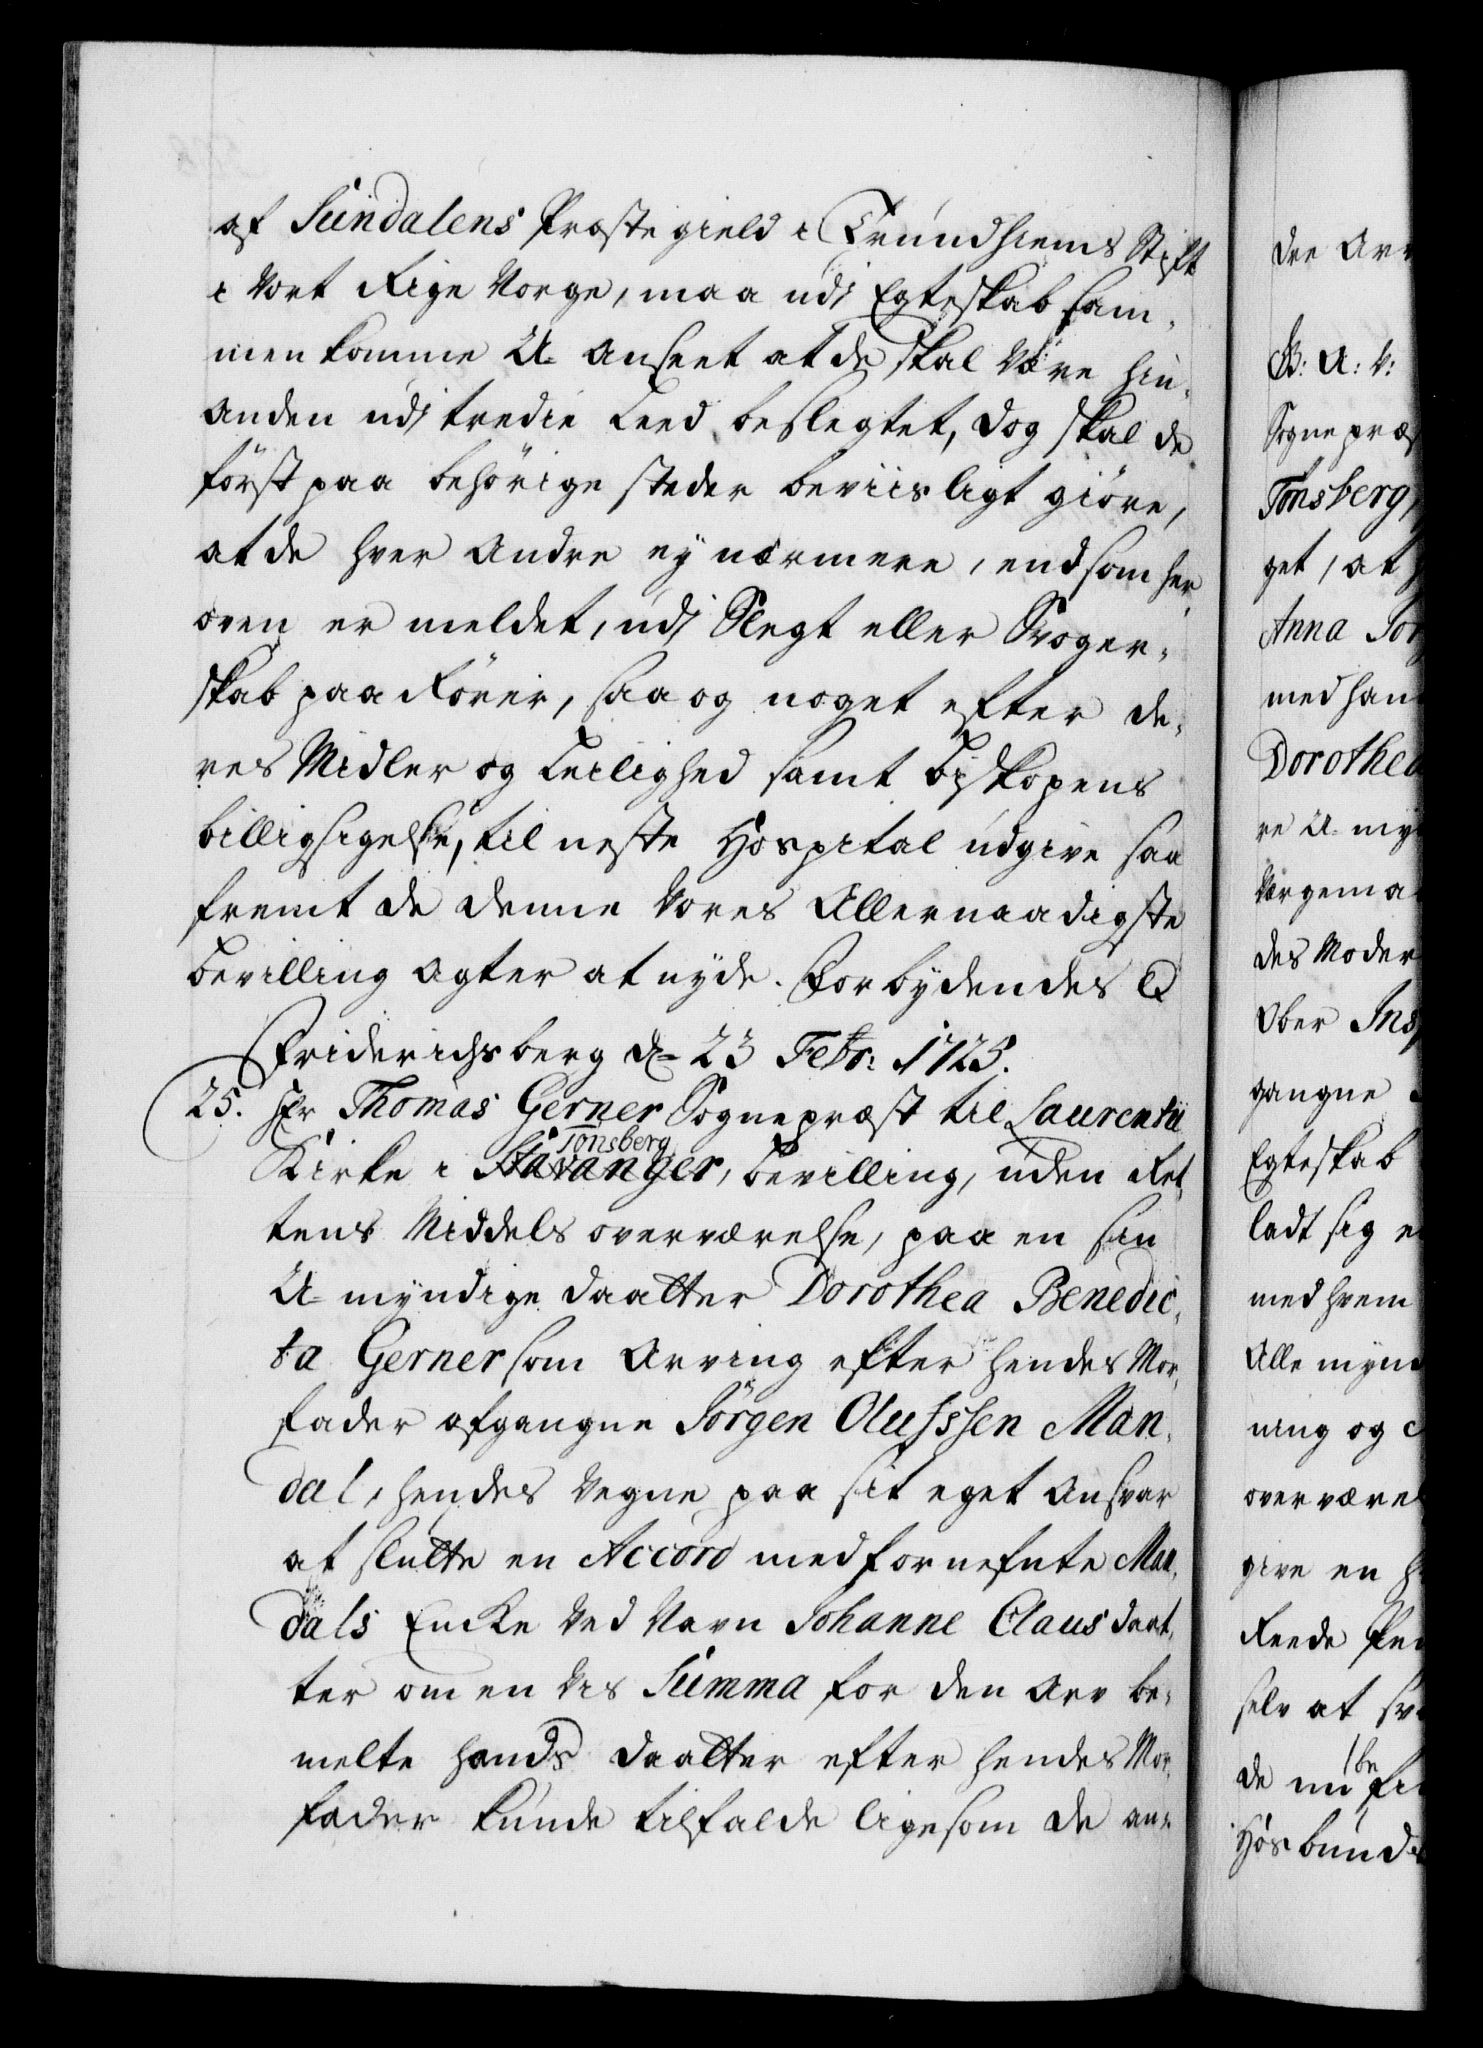 af Sundalens Præstegield i Trundhiems Stift
i Vort Rige Norge, maa udj Egteskab sam-
menkomme U-anseet at de skal være hin-
anden udj tredie Leed beslegtet, dog skal de
først paa behörige steder beviisligt giöre,
at de hver andre ey nærmere, end som her
oven er meldet, udj Slegt eller Svoger-
skab paarörer, saa og noget efter de-
res Midler og Leilighed samt Biskopens
billigsigelse, til neste Hospital udgive saa
fremt de denne Vores Allernaadigste
Bevilling agter at nyde. Forbydendes &
Friderichsberg d= 23 Febr: 1725.
25. Hr Thomas Gerner Sognepræst til Laurentii
Tonsberg
Kirke i Stavanger, bevilling, uden Ret-
tens Middels overværelse, paa en sin
U-myndige Daatter Dorothea Benedic-
ta Gerner som Arving efter hendes Mor-
fader afgangne Jörgen Olufssen Man-
dal, hendes Vegne paa sit eget Ansvar
at slutte en Accord med fornefnte Man-
dals Encke ved Navn Johanne Clausdaat-
ter om en vis Summa for den Arv be-
melte hands Daatter efter hendes Mor-
fader kunde tilfalde ligesom de an-
den Arv
B: A: V:
Sognepræs
Tonsberg,
get, at
Anna
med han
Dorothea
re U-my
Værgema
des Moder
Ober Ins
gangne
Egteskab
ladt sig
med hvem
Alle myn
ning og
overværel
give en
Reede Pen
selv at sv
be
de nu fi
Hosbunds